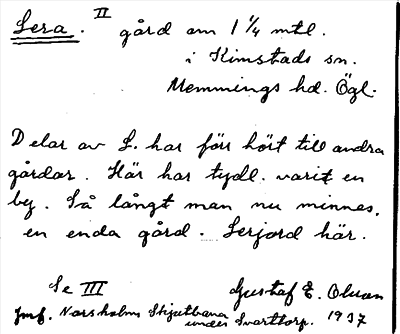 Lera. II gård om 1 1/4 mtl.
i Kimstads sn.
Memmings hd. Ögl.
Delar av L. har förr hört till andra
gårdar. Här har tydl. varit en
by. Så långt man nu minnes,
en enda gård. Lerjord här.
Se III Gustaf E. Olsson
Jmf. Norsholm Skjutbana 1937
under Svarttorp.